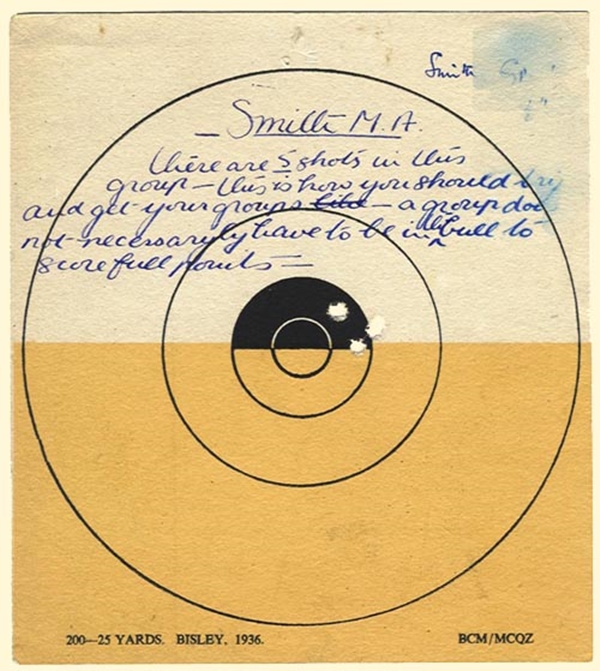 Smith
Smith M.A.
there are 5 shots in this
group — this is how you should try
and get your groups — a group does
not necessarily have to be in the bull to
score full points —
200—25 YARDS. BISLEY, 1936.
BCM/MCQZ